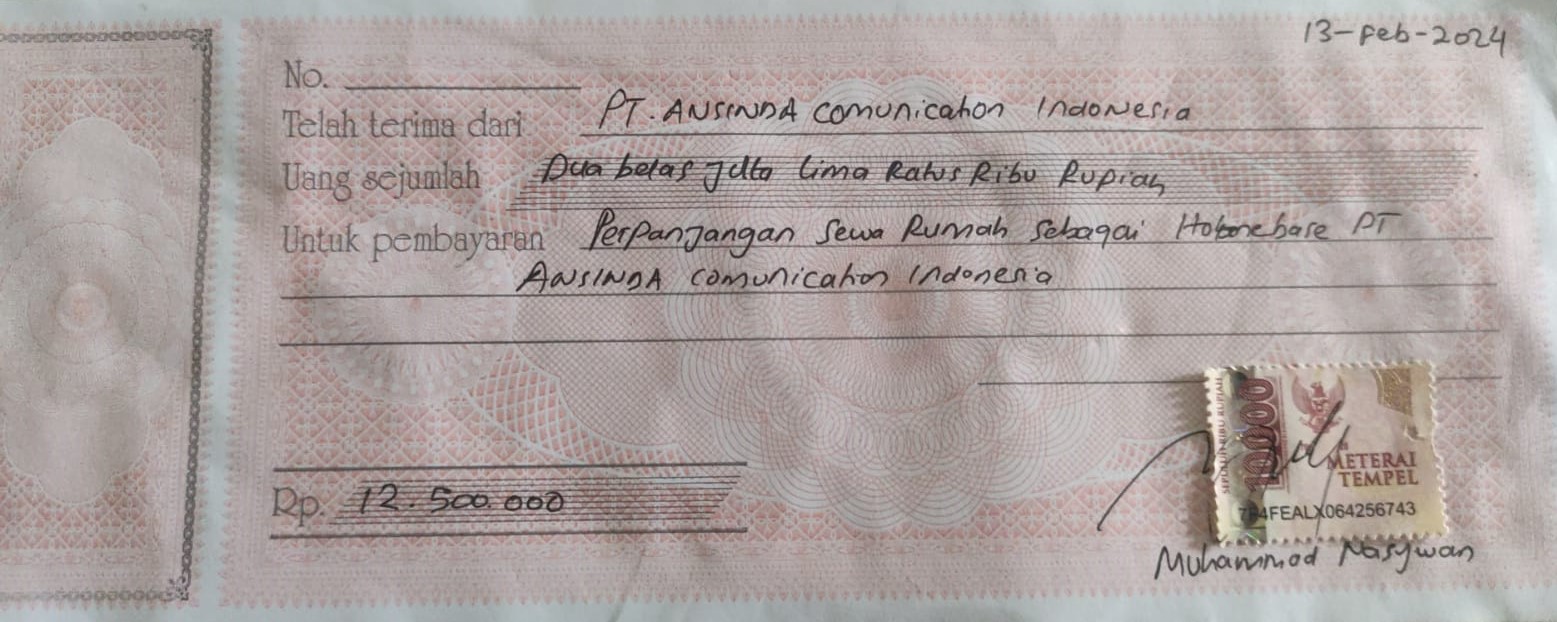 13-Feb-2024
No.
Telah terima dari PT. ANSINDA Comunication Indonesia
Uang sejumlah Dua belas Juta lima Ratus Ribu Rupiah
Untuk pembayaran Perpanjangan Sewa Rumah Sebagai base PT
ANSINDA Comunication Indonesia
SEPULUH RIBU RUPIAH
10000
METERAI
TEMPEL
FEALX064256743
Rp. 12.500.000
Muhammad Nasywan